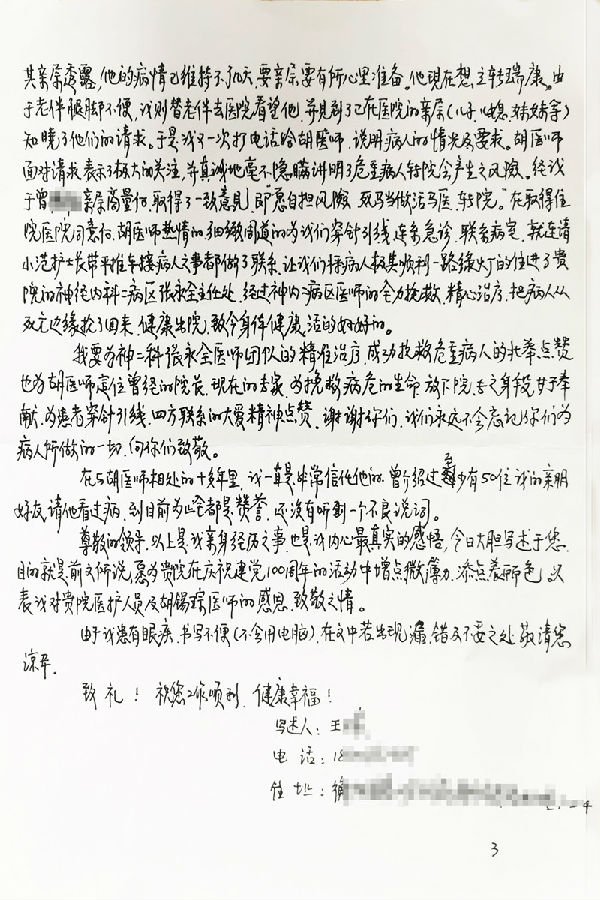 其亲属透露，他的病情已维持不了几天，要亲属要有所心里准备。他现在想立转瑞康。由
于老伴腿脚不便，我则替老伴去医院看望他，并见到了已在医院的亲属(儿子、媳、妹妹等)
知晓了他们的请求。于是我又一次打电话给胡医师，说明病人的情况及要求。胡医师
面对请求表示了极大的关注，并真诚地毫不隐瞒讲明了危重病人转院会产生之风险。经我
于曾 亲属商量后，取得了一致意见，即“愿自担风险，死马当做活马医，转院。”在取得住
院医院同意后，胡医师热情的细微周道的为我们穿针引线，连系急诊，联系病室，就连请
小范护士长带平推车接病人之事都做了联系，让我们将病人极其顺利一路绿灯的住进了贵
院的神经内科二病区张永全主任处，经过神内二病区医师的全力抢救，精心治疗，把病人从
死亡边缘抢了回来，健康出院，致今身体健康，活的好好的。
我要为神二科张永全医师团队的精准治疗，成功抢救危重病人的壮举点赞
也为胡医师这位曾经的院长，现在的专家，为挽救病危的生命，放下院长之身段，甘于奉
献，为患者穿针引线，四方联系的大爱精神点赞，谢谢你们，我们永远不会忘记你们为
病人所做的一切，向你们致敬。
在与胡医师相处的十多年里，我一直是非常信任他的，曾介绍过至少有50位我的亲朋
好友请他看过病，到目前为啥都是赞誉，还没有听到一个不良说词。
尊敬的领导，以上是我亲身经历之事，也是我内心最真实的感悟，今日大胆写述于您，
目的就是前文所说，愿为贵院在庆祝建党100周年的活动中增点微薄力，添点着颜色，以
表我对贵院医护人员及胡锡琮医师的感恩，致敬之情。
由于我患有眼疾，书写不便(不会用电脑)，在文中若出现漏、错及不妥之处，敬请您
谅解.
致礼！祝您工作顺利、健康幸福！
写述人：王
电话：18
住址：
3